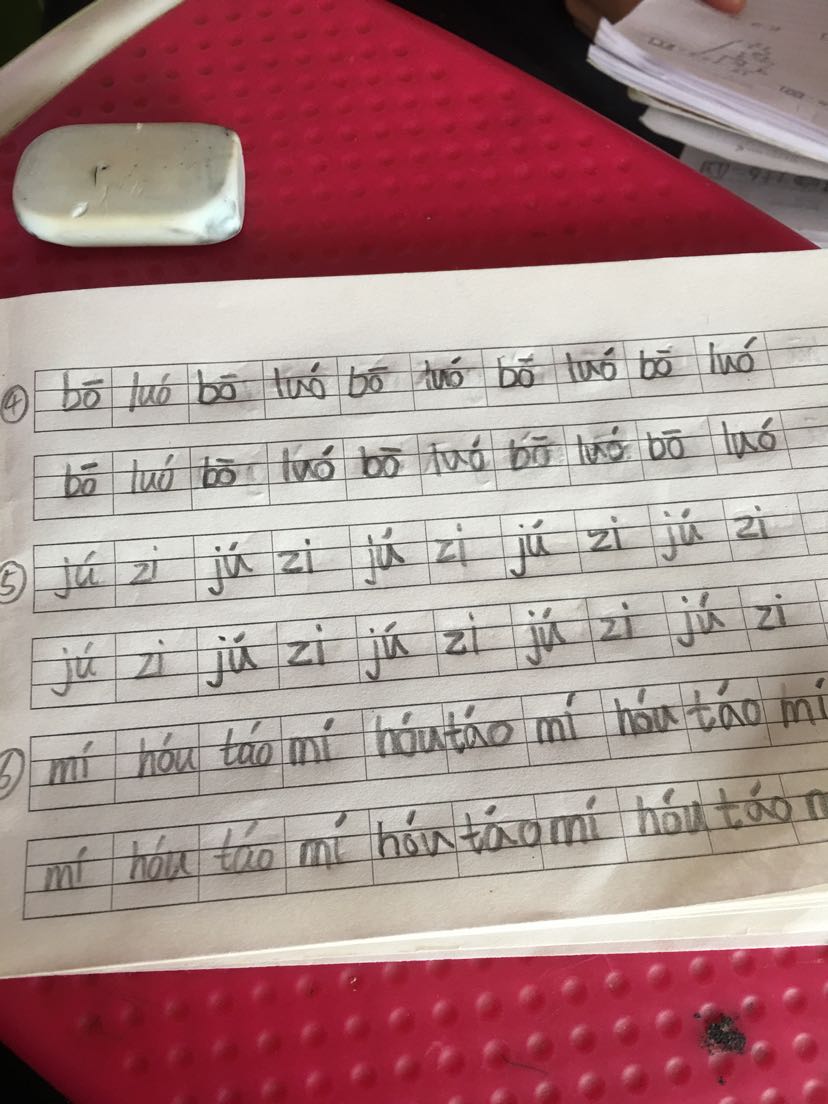 ④ bō luó bō luó bō luó bō luó bō luó
bō luó bō luó bō luó bō luó bō luó
⑤ jú zi jú zi jú zi jú zi jú zi
jú zi jú zi jú zi jú zi jú zi
⑥ mí hóu táo mí hóu táo mí hóu táo mí
mí hóu táo mí hóu táo mí hóu táo